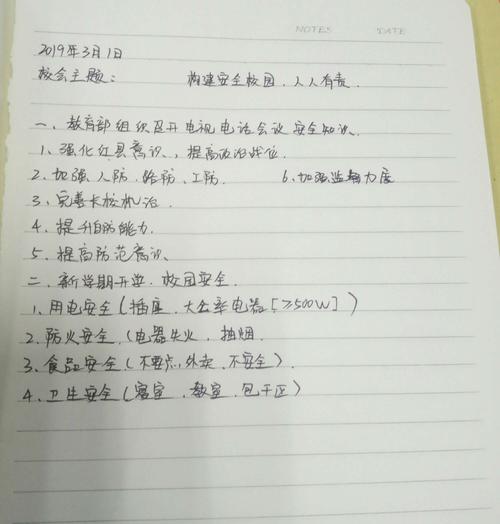 NOTES DATE
2019年3月1日
校会主题： 构建安全校园，人人有责．
一、教育部组织召开电视电话会议 安全知识．
1、强化红县意识，提高政治战位．
2、加强人防、技防、工防． 6、加强监督力度
3、完善长校机治．
4、提升自防能力．
5、提高防范意识、
二、新学期开学．校园安全．
1、用电安全（插座、大公率电器［≥500W］）
2、防火安全．（电器失火，抽烟．
3、食品安全（不要点外卖，不安全）．
4、卫生安全（寝室、教室、包干区）